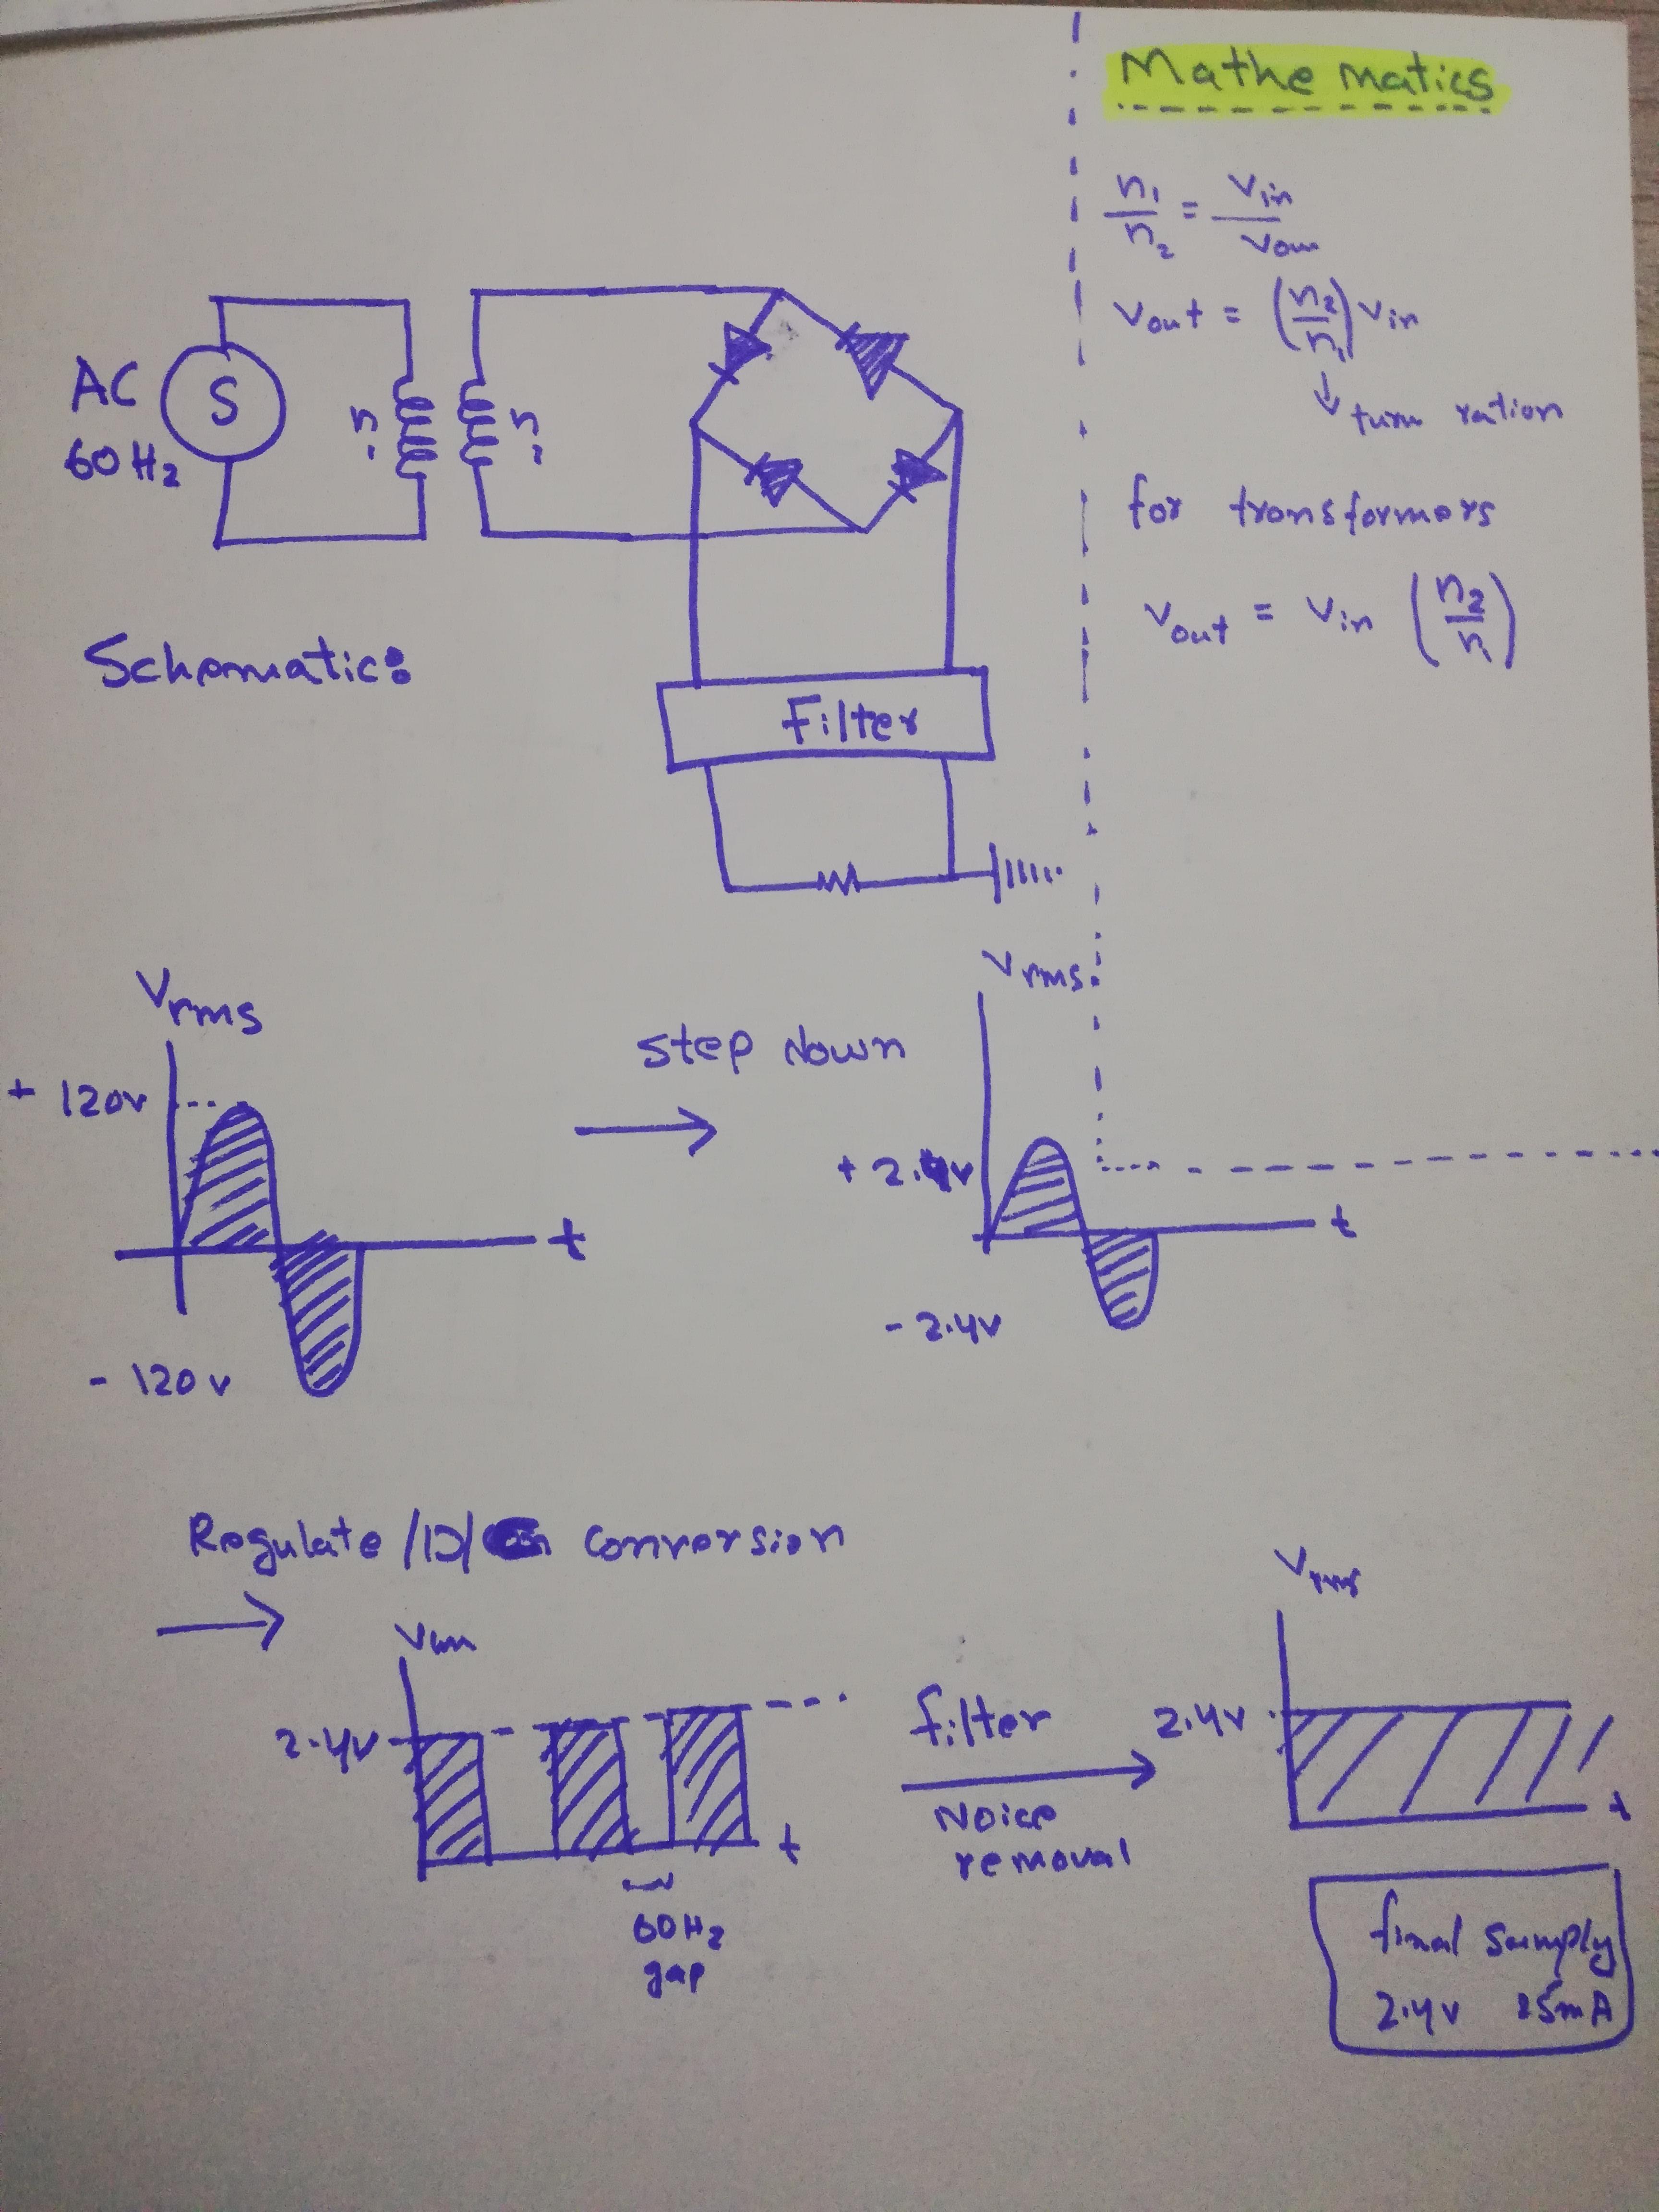 Mathematics
n1/n2 = Vin/Vou
Vout = (n2/n1) Vin
↓ turn ration
for transformers
Vout = Vin (n2/n1)
AC
60 Hz
S
n1
n2
Schematic:
Filter
Vrms
+ 120v
- 120v
t
step down
→
Vrms
+ 2.4v
- 2.4v
t
Regulate / conversion
→
2.4v
t
60Hz
gap
filter
→
Noice
removal
Vrms
2.4v
t
final
2.4v